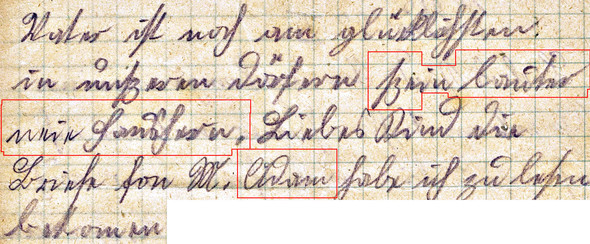 Vater ist noch am glücklichsten.
in unßeren Dörfern ßein lauter
neie Haushern. Liebes Kind die
Briefe fon M. Adam habe ich zu lesen
bekomen